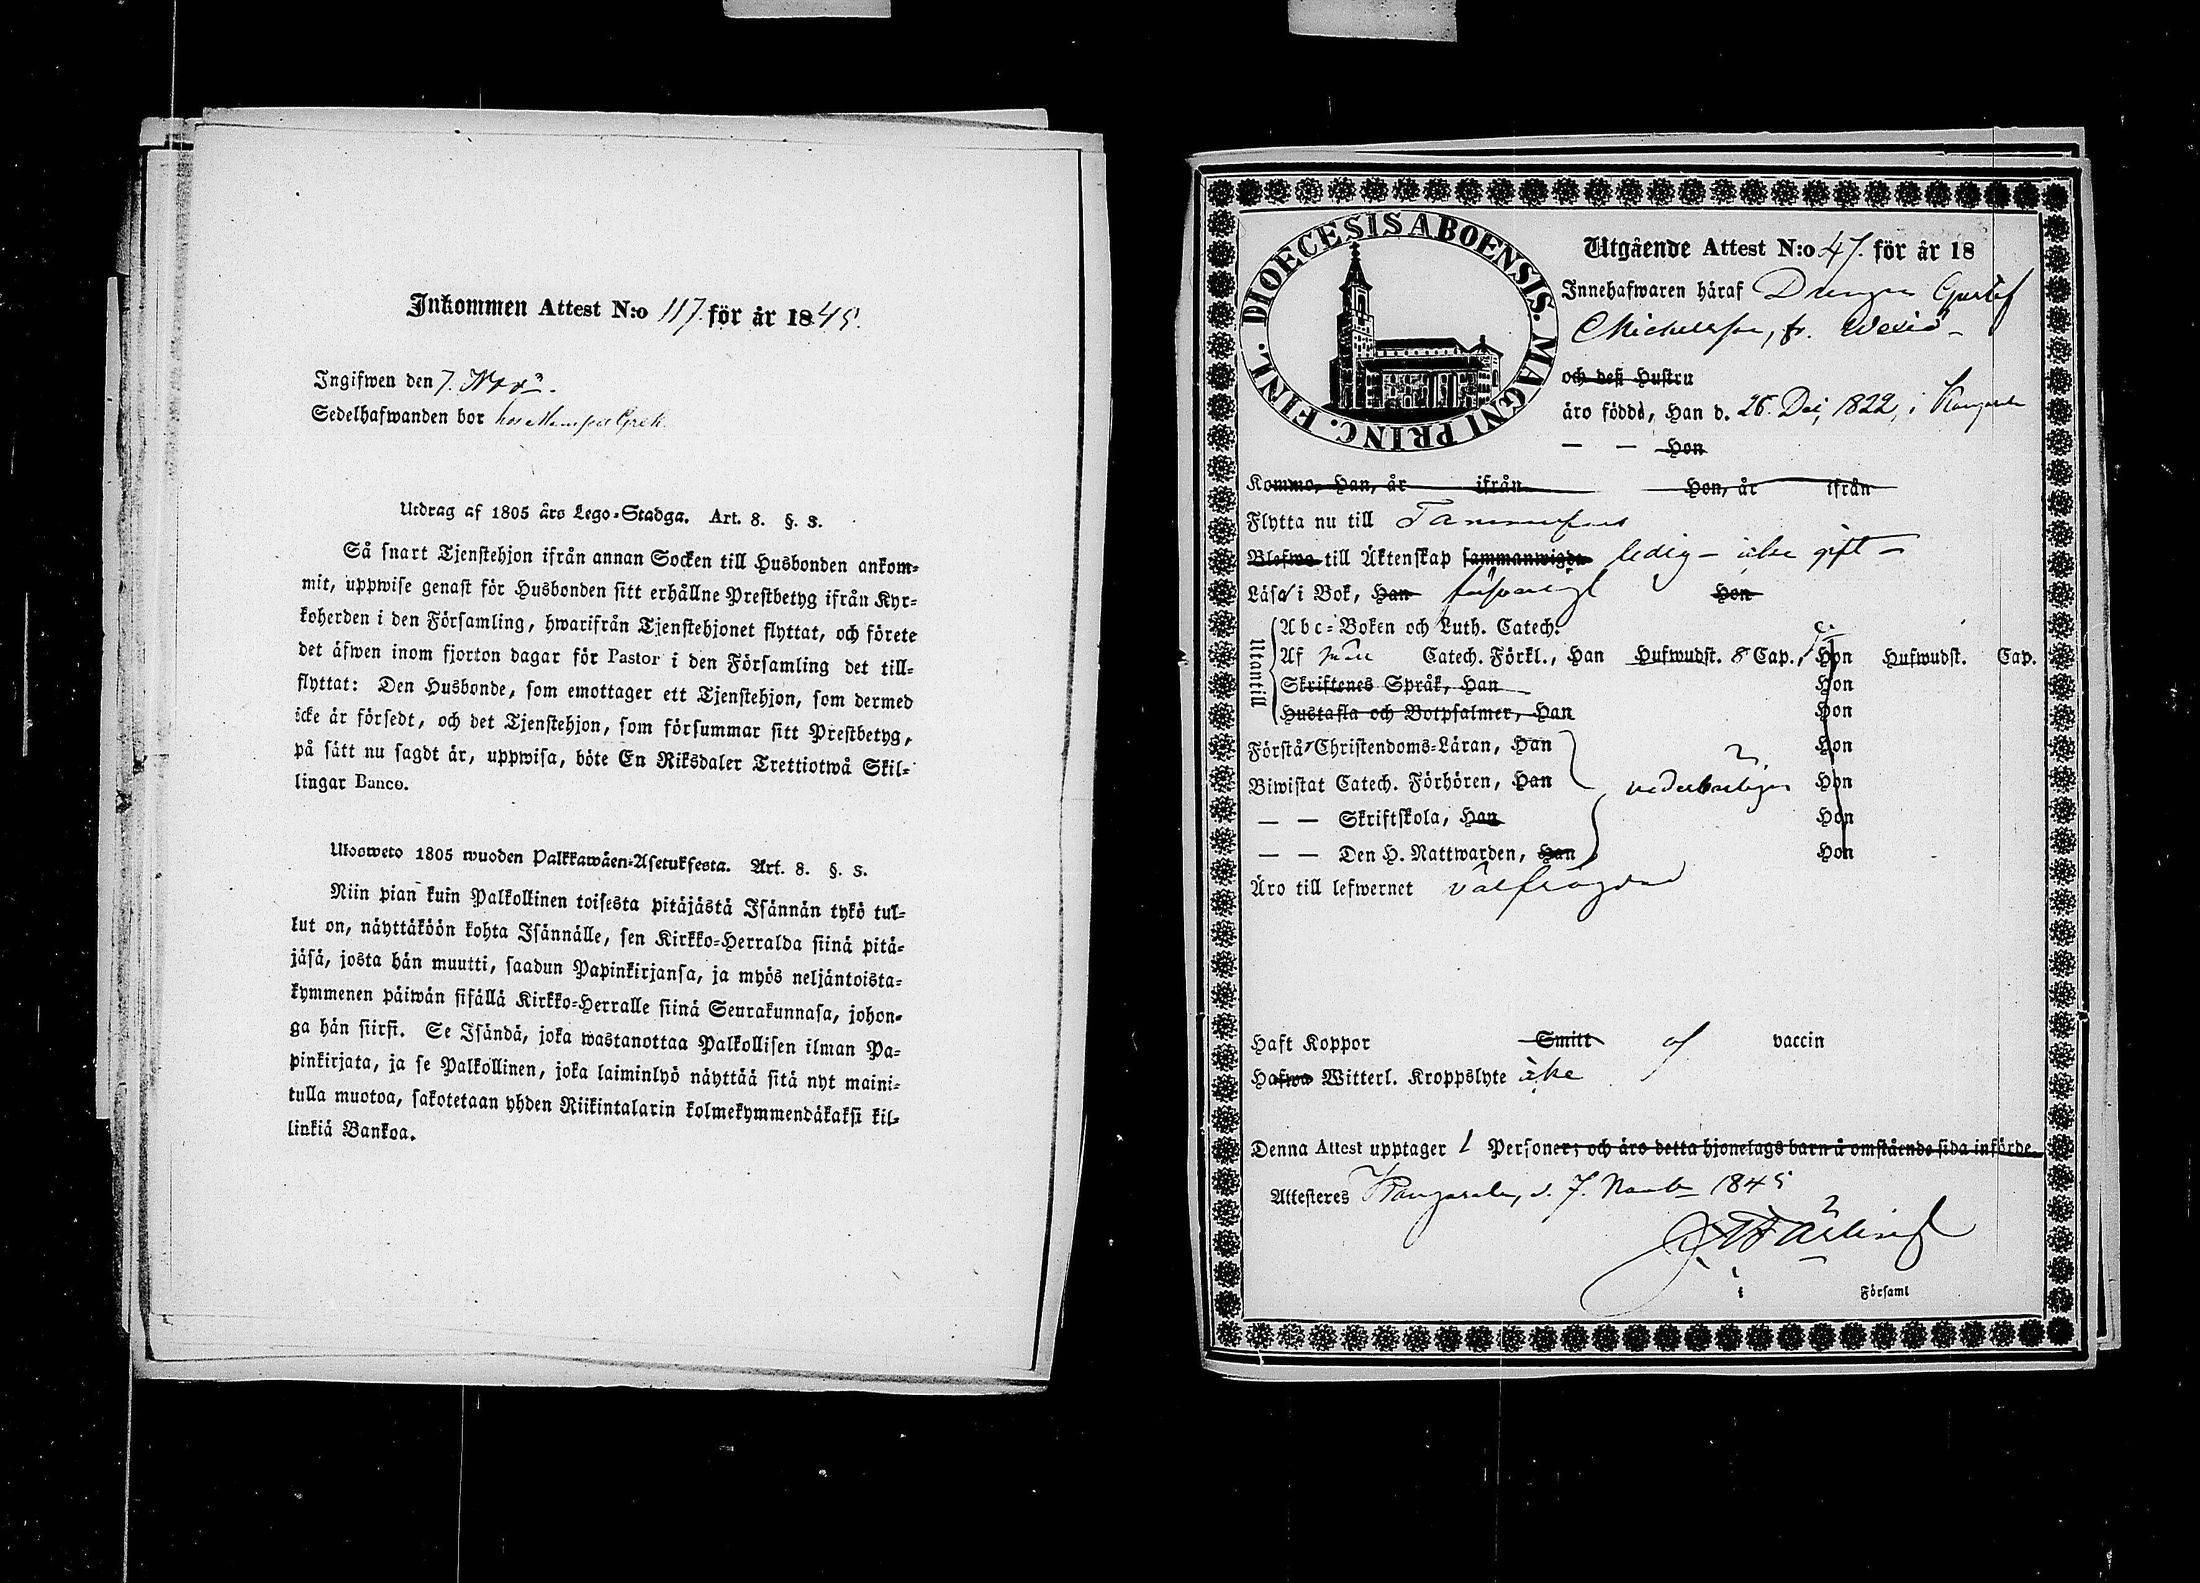 Inkommen Attest N:o 117. för år 1845.
Ingifwen den 7. Nov.
Sedelhafwanden bor hos
Utdrag af 1805 års Lego-Stadga. Art. 8. §. 3.
Så snart Tjenstehjon ifrån annan Socken till Husbonden ankom-
mit, uppwise genast för Husbonden sitt erhållne Prestbetyg ifrån Kyr-
koherden i den Församling, hwarifrån Tjenstehjonet flyttat, och förete
det äfwen inom fjorton dagar för Pastor i den Församling det till-
flyttat: Den Husbonde, som emottager ett Tjenstehjon, som dermed
icke är försedt, och det Tjenstehjon, som försummar sitt Prestbetyg,
på sätt nu sagdt är, uppwisa, böte En Riksdaler Trettiotwå Skil-
lingar Banco.
Ulosweto 1805 wuoden Palkkawäen-Asetuksesta. Art. 8. §. 3.
Niin pian kuin Palkollinen toisesta pitäjästä Isännän tykö tul-
lut on, näyttäköön kohta Isännälle, sen Kirkko-Herralda siinä pitä-
jäsä, josta hän muutti, saadun Papinkirjansa, ja myös neljäntoista-
kymmenen päiwän sisällä Kirkko-Herralle siinä Seurakunnasa, johon-
ga hän siirsi. Se Isändä, joka wastanottaa Palkollisen ilman Pa-
pinkirjata, ja se Palkollinen, joka laiminlyö näyttää sitä nyt maini-
tulla muotoa, sakotetaan yhden Riikintalarin kolmekymmendäkaksi kil-
linkiä Bankoa.
DIOECESIS ABOENSIS. MAGNI PRINC. FINL.
Utgående Attest N:o 47. för år 18
Innehafwaren häraf Drengen Gustaf
Michelsson, fr.
och deß Hustru
äro födde, Han d. 26. Dec. 1822, i Kangasala
— — Hon
Kommo, Han, år ifrån Hon, år ifrån
Flytta nu till Tammerfors
Blefwo till Äktenskap sammanwigde ledig – icke gift –
Läsa i Bok, Han försvarligt Hon
Mantill
Abc-Boken och Luth. Catech.
Af Catech. Förkl., Han Hufwudst. 8 Cap., Hon Hufwudst. Cap.
Skriftenes Språk, Han Hon
Hustafla och Botpsalmer, Han Hon
Förstå Christendoms-Läran, Han Hon
Biwistat Catech. Förhören, Han vederbörligen Hon
— — Skriftskola, Han Hon
— — Den H. Nattwarden, Han Hon
Äro till lefwernet välfrägdad
Haft Koppor Smitt af vaccin
Hafwa Witterl. Kroppslyte icke
Denna Attest upptager 1 Personer; och äro detta hjonelags barn å omstående sida införde.
Attesteres Kangasala, d. 7. Novemb. 1845
i Församl